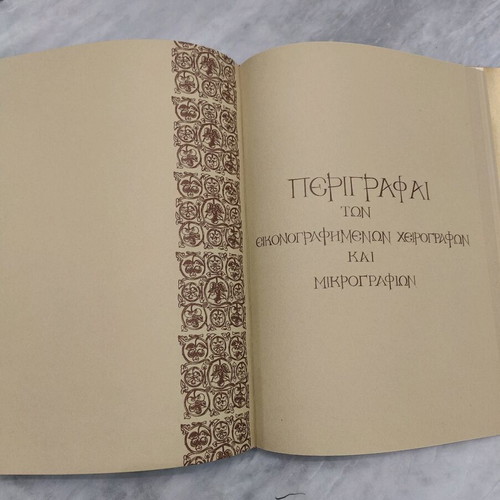 ΠΕΡΙΓΡΑΦΑΙ
ΤΩΝ
ΕΙΚΟΝΟΓΡΑΦΗΜΕΝΩΝ ΧΕΙΡΟΓΡΑΦΩΝ
ΚΑΙ
ΜΙΚΡΟΓΡΑΦΙΩΝ